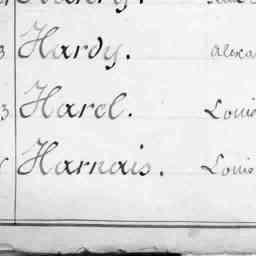 Hardy.
3 Harel. Louis
Harnais. Louis